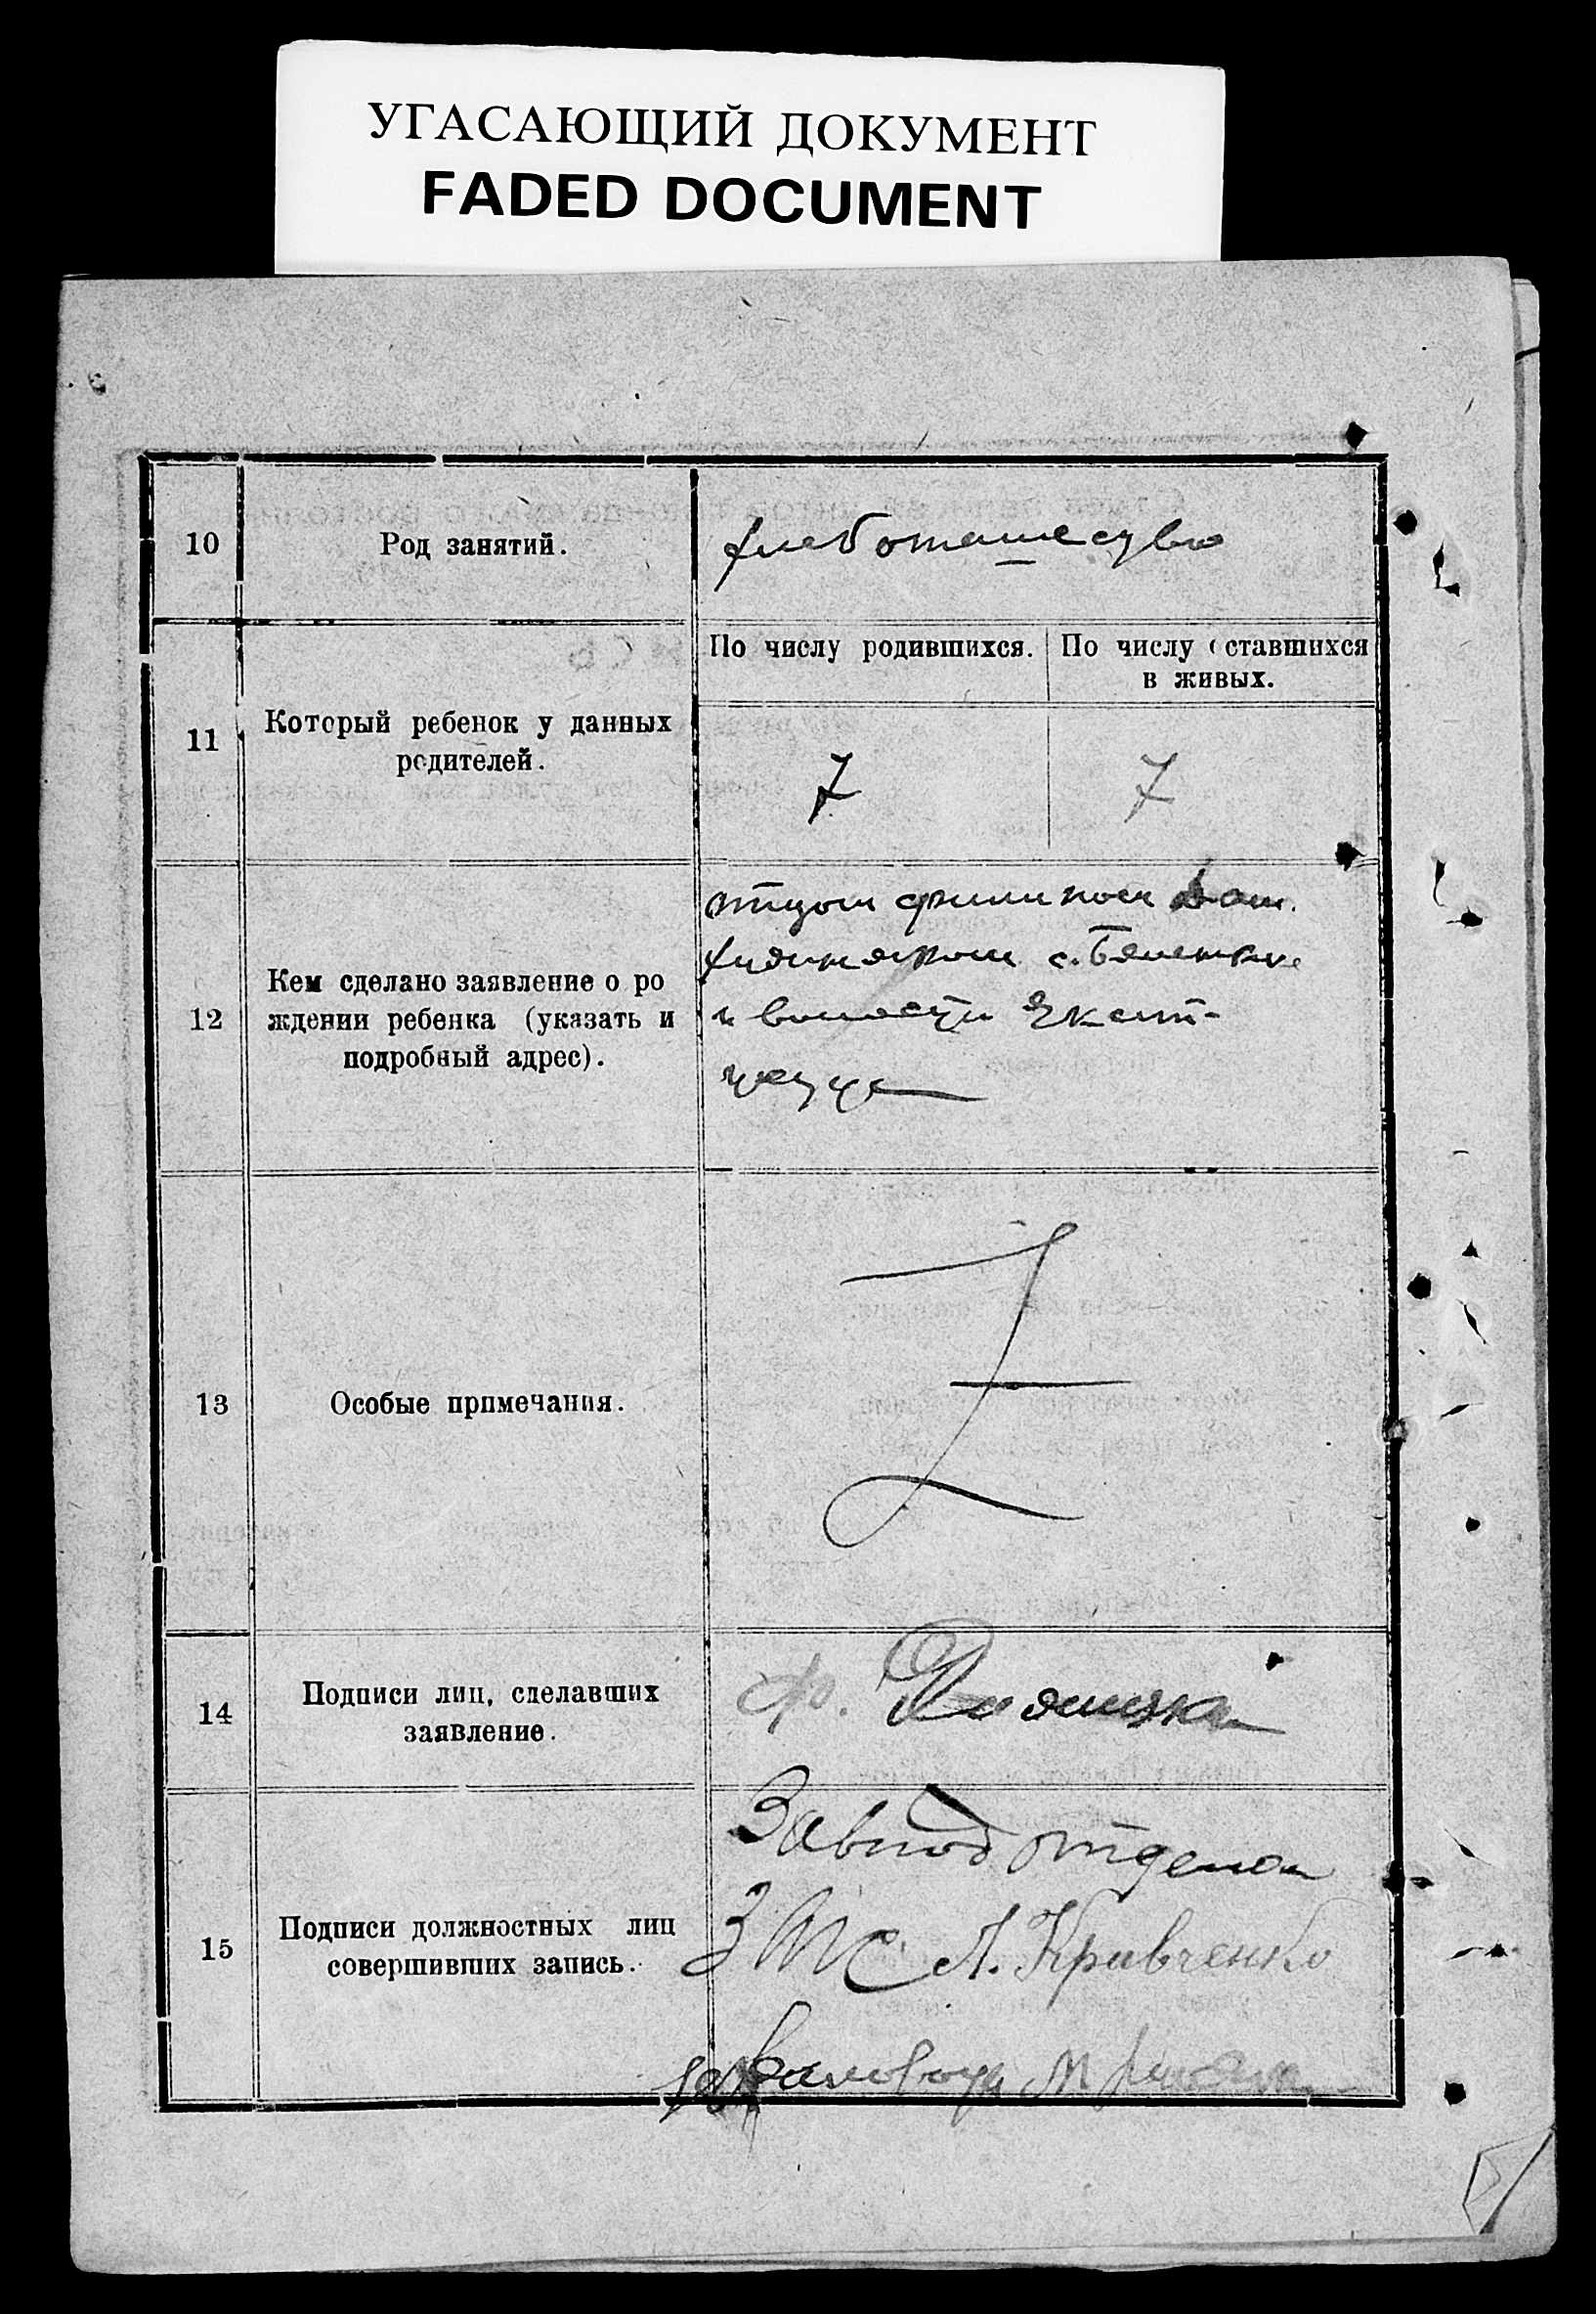 УГАСАЮЩИЙ ДОКУМЕНТ
FADED DOCUMENT
10
Род занятий.
хлебопашество
11
Который ребенок у данных
родителей.
По числу родившихся.
По числу оставшихся
в живых.
7
7
12
Кем сделано заявление о ро
ждении ребенка (указать и
подробный адрес).
отцом филипом
с. Беленькое
и волости Екат-
13
Особые примечания.
14
Подписи лиц, сделавших
заявление.
Ф.
15
Подписи должностных лиц
совершивших запись.
Завпод отделом
ЗАГС Л. Кравченко